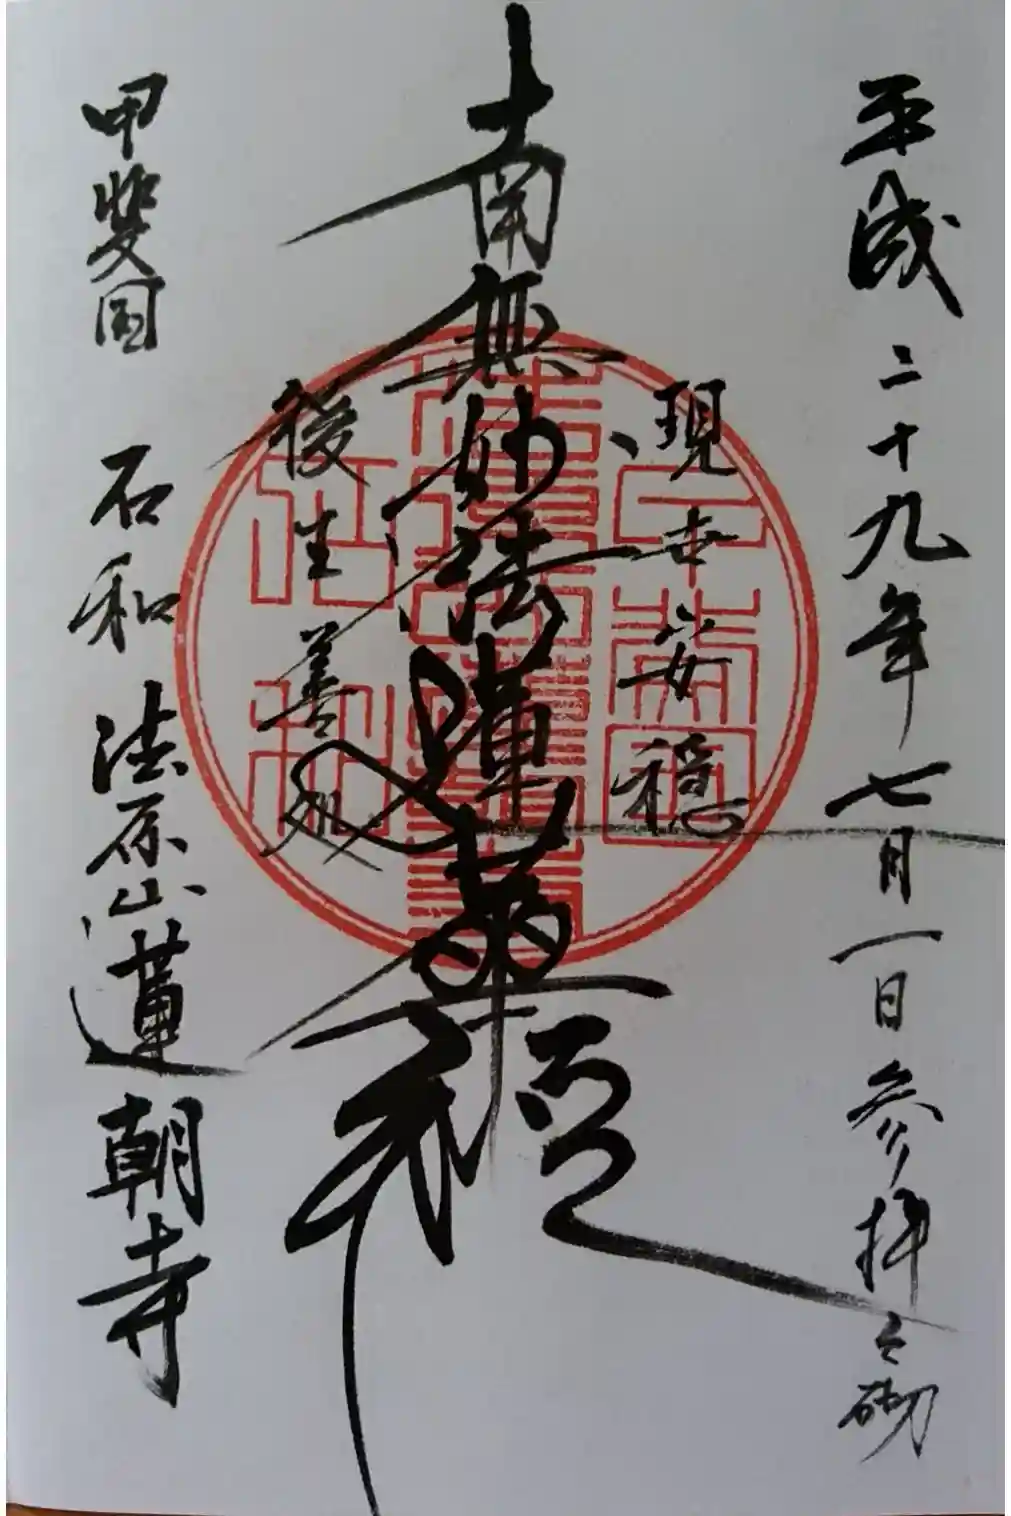 平成二十九年七月一日参拝之砌
現世安穏
南無妙法蓮華経
後生善処
甲斐国 石和 法原山蓮朝寺